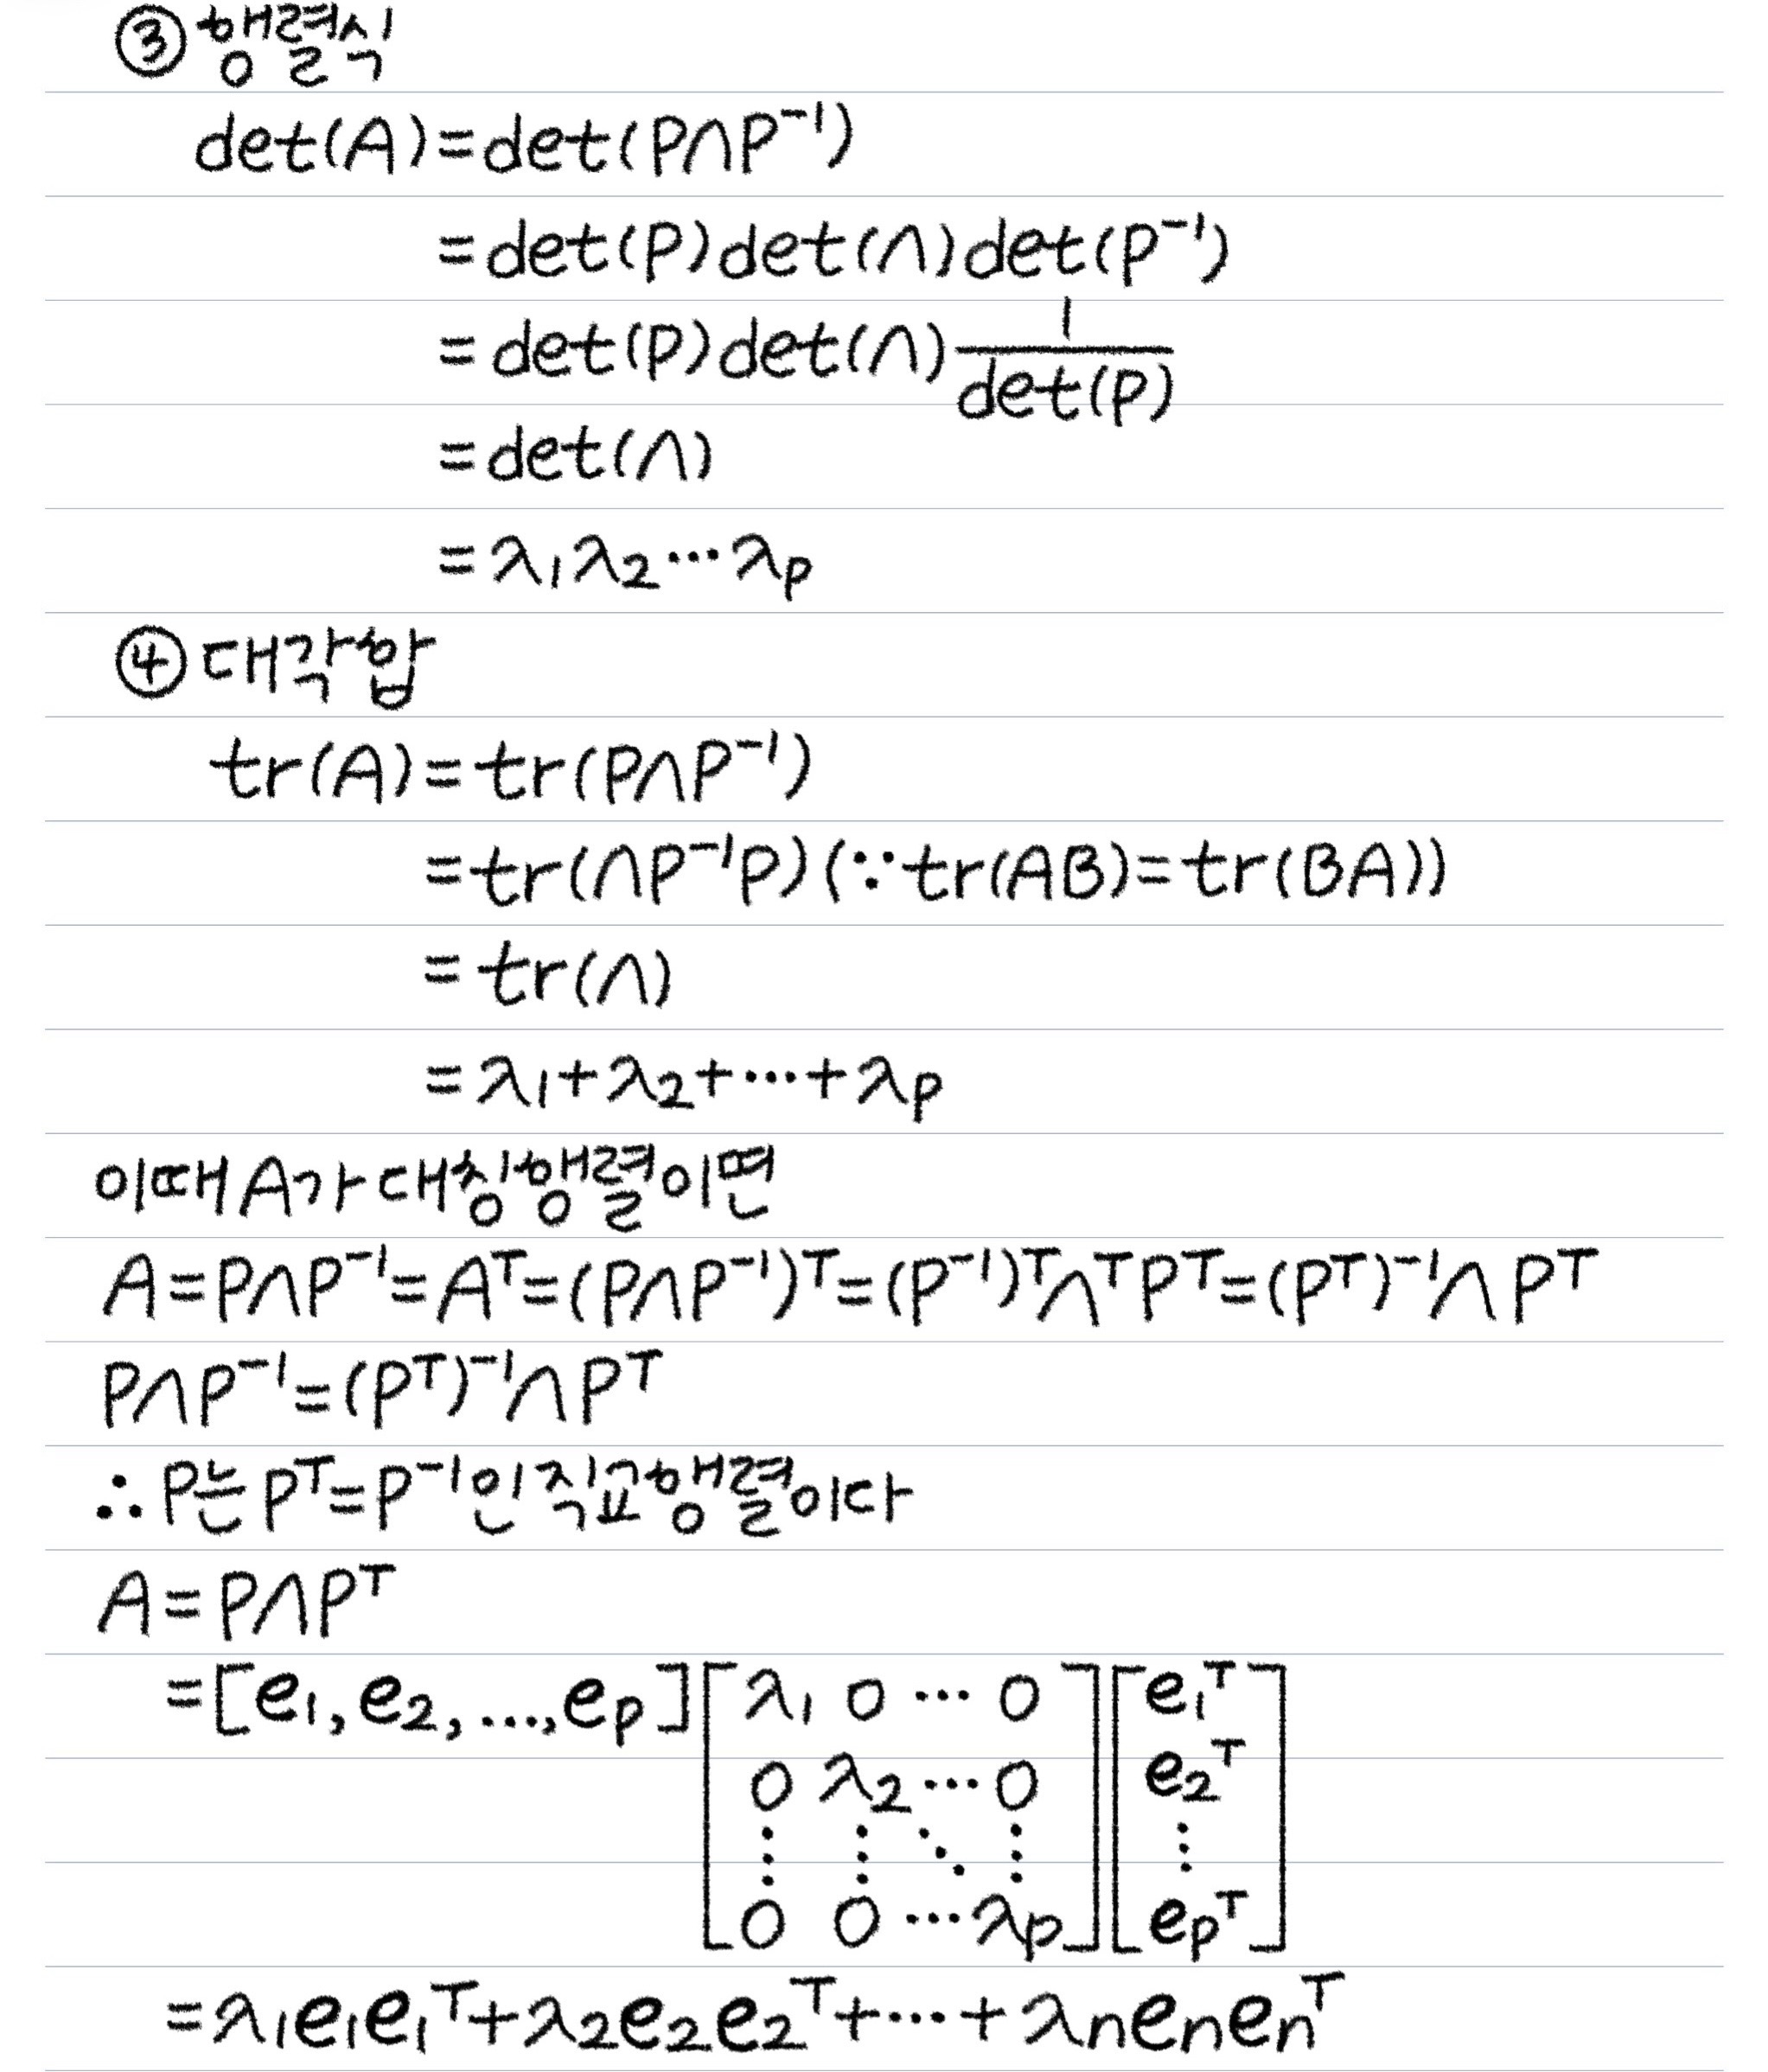 ③ 행렬식
det(A)=det(PΛP⁻¹)
=det(P)det(Λ)det(P⁻¹)
=det(P)det(Λ) 1/det(P)
=det(Λ)
=λ₁λ₂⋯λp
④ 대각합
tr(A)=tr(PΛP⁻¹)
=tr(ΛP⁻¹P)(∵tr(AB)=tr(BA))
=tr(Λ)
=λ₁+λ₂+⋯+λp
이때 A가 대칭행렬이면
A=PΛP⁻¹=Aᵀ=(PΛP⁻¹)ᵀ=(P⁻¹)ᵀΛᵀPᵀ=(Pᵀ)⁻¹ΛPᵀ
PΛP⁻¹=(Pᵀ)⁻¹ΛPᵀ
∴P는 Pᵀ=P⁻¹인 직교행렬이다
A=PΛPᵀ
=[e₁,e₂,...,ep][λ₁ 0 ⋯ 0][e₁ᵀ]
0 λ₂ ⋯ 0 e₂ᵀ
⋮ ⋮ ⋱ ⋮ ⋮
0 0 ⋯ λp epᵀ
=λ₁e₁e₁ᵀ+λ₂e₂e₂ᵀ+⋯+λnenenᵀ